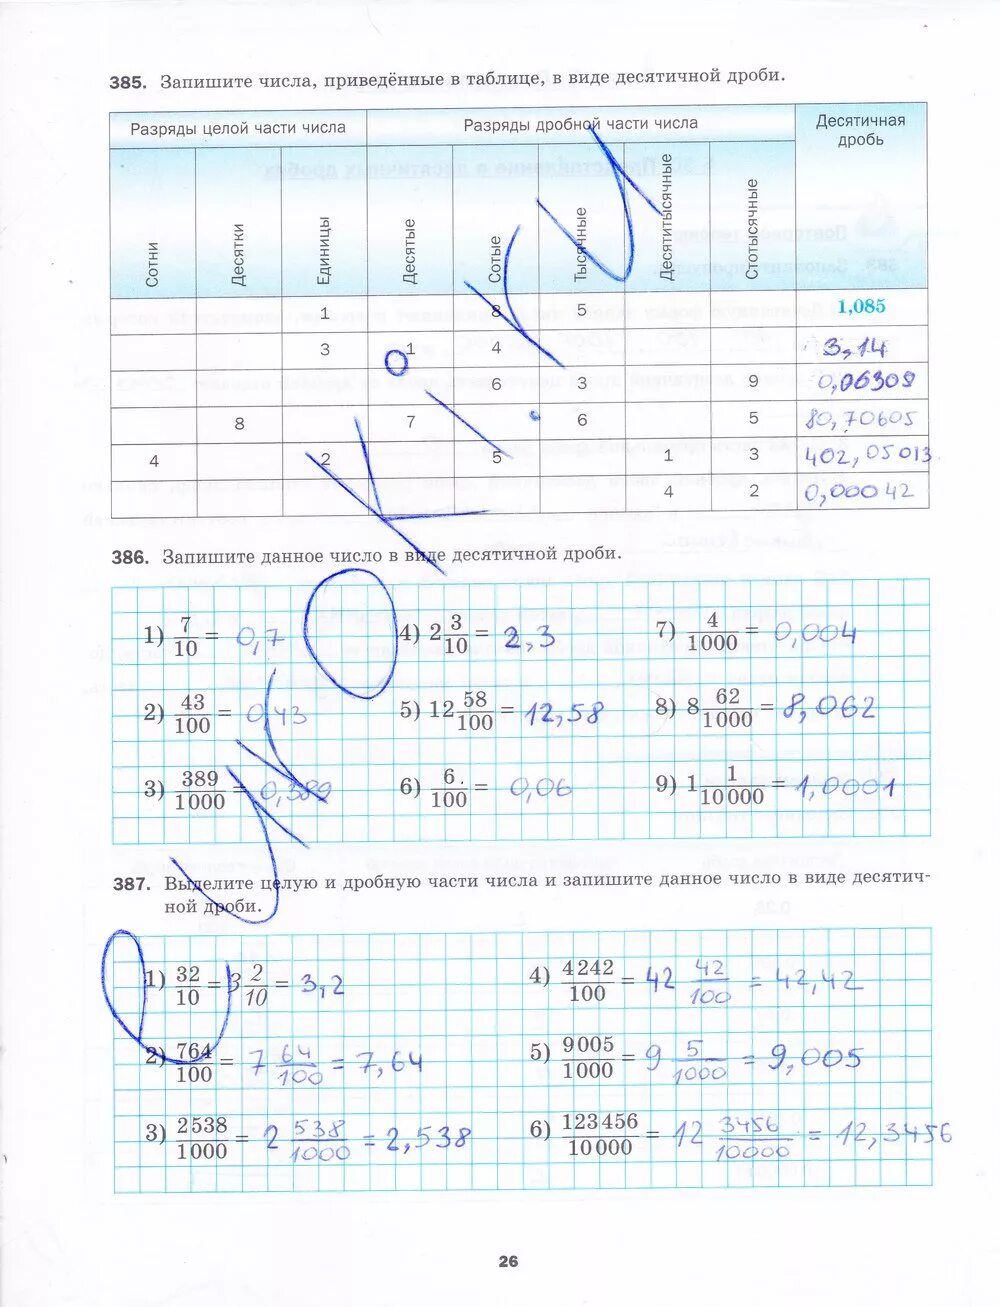 385. Запишите числа, приведённые в таблице, в виде десятичной дроби.
Разряды целой части числа Разряды дробной части числа Десятичная дробь
Сотни Десятки Единицы Десятые Сотые Тысячные Десятитысячные Стотысячные
1 8 5 1,085
3 1 4 3,14
6 3 9 0,06309
8 7 6 5 80,70605
4 2 5 1 3 402,05013
4 2 0,00042
386. Запишите данное число в виде десятичной дроби.
1) 7/10 = 0,7 4) 2 3/10 = 2,3 7) 4/1000 = 0,004
2) 43/100 = 0,43 5) 12 58/100 = 12,58 8) 8 62/1000 = 8,062
3) 389/1000 = 0,389 6) 6/100 = 0,06 9) 1 1/10 000 = 1,0001
387. Выделите целую и дробную части числа и запишите данное число в виде десятич-
ной дроби.
1) 32/10 = 3 2/10 = 3,2 4) 4242/100 = 42 42/100 = 42,42
2) 764/100 = 7 64/100 = 7,64 5) 9005/1000 = 9 5/1000 = 9,005
3) 2538/1000 = 2 538/1000 = 2,538 6) 123 456/10 000 = 12 3456/10000 = 12,3456
26